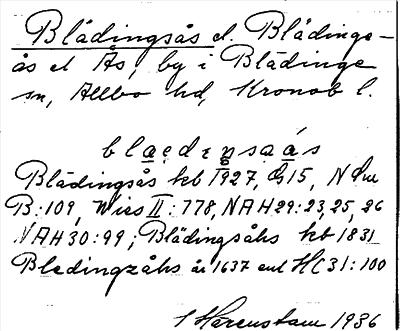 Blädingsås el. Blädinge-
ås el Ås, by i Blädinge
sn, Allbo hd, Kronob l.
blaedɪŋsaás
Blädingsås kb 1927, GS15, NSm
B:109, Wies II:778, NAH29:23,25,26
NAH30:99; Blädingsåhs kb 1831
Bledingzåhs år 1637 enl HC31:100
Härenstam 1936